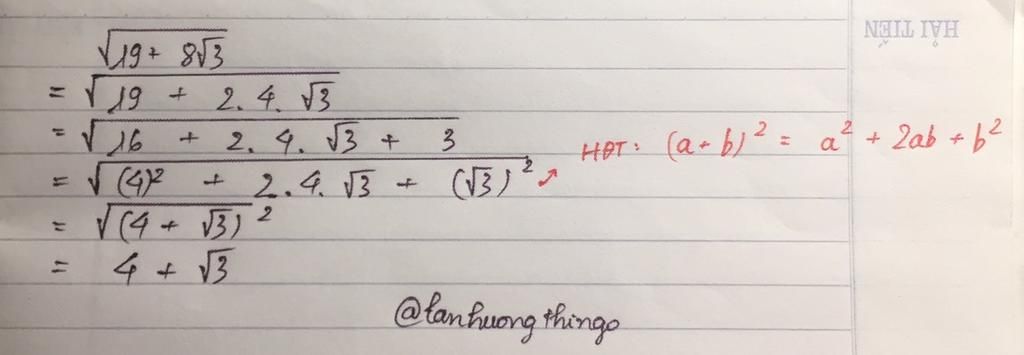 √19 + 8√3
= √19 + 2. 4. √3
= √16 + 2. 4. √3 + 3
= √(4)² + 2. 4. √3 + (√3)²
HĐT: (a + b)² = a² + 2ab + b²
= √(4 + √3)²
= 4 + √3
@lanhuongthingo
HẢI TIẾN